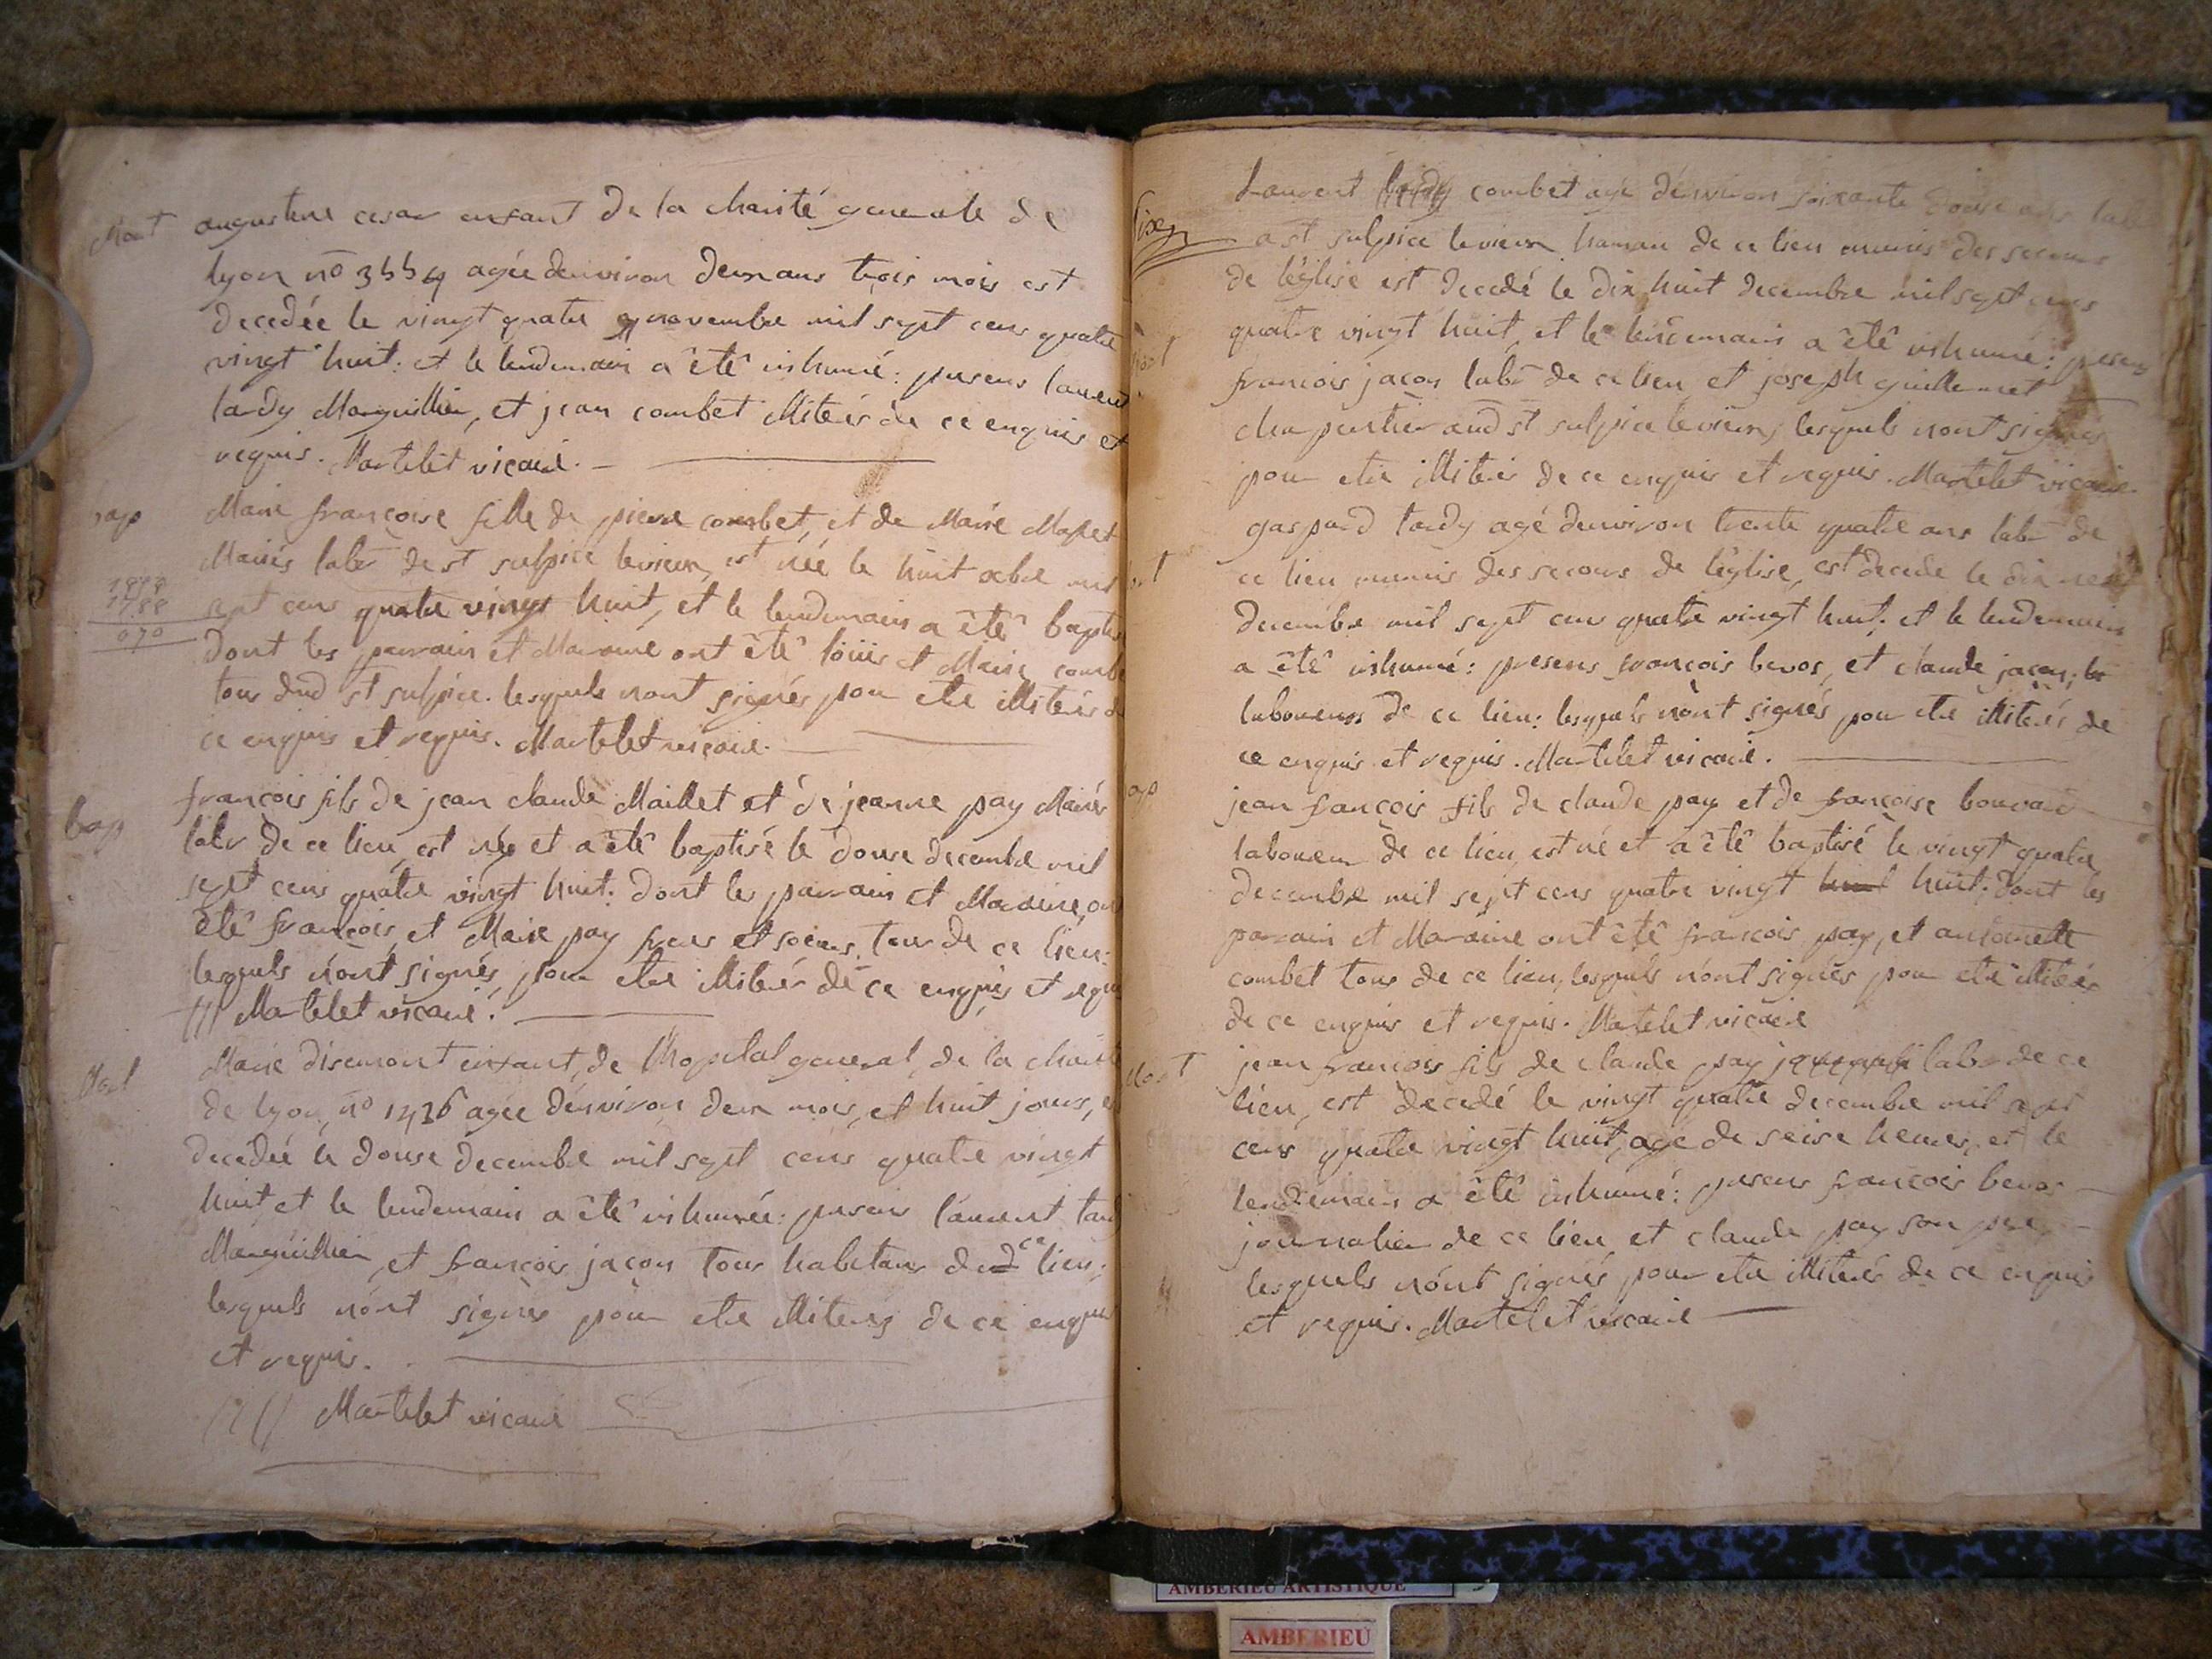 Mort
augustine cesar enfant de la charité generale de
lyon no 3554 agée denviron deux ans trois mois est
decedée le vingt quatre novembre mil sept cens quatre
vingt huit: et le lendemain a êtê inhumé: presens laurent
tardy Marguillier, et jean combet illiterés de ce enquis et
requis. Martelet vicaire.
bap
Marie françoise fille de pierre combet, et de Marie
Mariés labr de st sulpice levieux, est née le huit xbre mil
1858
1788
070
sept cens quatre vingt huit, et le lendemain a êtê baptis
dont les parrain et Maraine ont êtê loüis et Marie combe
tous dud st sulpice. lesquels nont signés pour etre illiterés de
ce enquis et requis. Martelet vicaire.
bap
françois fils de jean claude Maillet et de jeanne pay Mariés
labr de ce lieu, est né et a êtê baptisé le douse decembre mil
sept cens quatre vingt huit: dont les parrain et Maraine, ont
êtê françois, et Marie pay freres et soeurs, tous de ce lieu:
lesquels nont signés, pour etre illiterés de ce enquis et requis
Martelet vicaire.
Mort
Marie disemont enfant, de lhopital general, de la charité
de lyon, no 1426 agée dénviron deux mois, et huit jours, es
decedée le douse decembre mil sept cens quatre vingt
huit et le lendemain a êtê inhumée: presens laurent tardy
Marguillier, et françois jaçon tous habitans dud ce lieu;
lesquels nónt signés pour etre illiterés de ce enquis
et requis.
Martelet vicaire
Laurent combet agé dénviron soixante douse ans labr
a st sulpice levieux hamau de ce lieu munis des secours
de léglise est decedé le dix huit decembre mil sept cens
Mort
quatre vingt huit, et le lendemain a êtê inhumé: presens
francois jaçon labr de ce lieu et joseph guillermet
charpentier aud st sulpice levieux, lesquels nont signés
pour etre illiterés de ce enquis et requis. Martelet vicaire.
gaspard tardy agé denviron trente quatre ans labr de
ce lieu munis des secours de léglise, est decede le dix neuf
decembre mil sept cens quatre vingt huit; et le lendemain
a êtê inhumé: presens françois bevos, et claude jaçon,
laboureurs de ce lieu: lesquels nónt signés pour etre illiterés de
ce enquis et requis. Martelet vicaire.
bap
jean françois fils de claude pay et de françoise bouvard
laboureur de ce lieu, est né et a êtê baptisé le vingt quatre
decembre mil sept cens quatre vingt huit huit: dont les
parrain et Maraine ont êtê françois pay, et antoinette
combet tous de ce lieu, lesquels nónt signés pour etre illiterés
de ce enquis et requis. Martelet vicaire
Mort
jean françois fils de claude pay labr de ce
lieu, est decedé le vingt quatre decembre mil sept
cens quatre vingt huit, agé de seise heures, et le
lendemain a êtê inhumé: presens françois bevos
journalier de ce lieu, et claude pay son pere
lesquels nónt signés pour etre illiterés de ce enquis
et requis. Martelet vicaire
AMBERIEU ARTISTIQUE
AMBERIEU